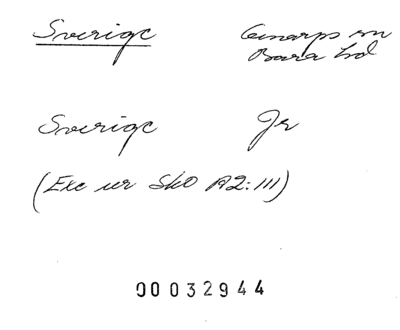 Sverige Genarps sn
Bara hd
Sverige Jr
(Exc ur Sko A2:111)
00032944